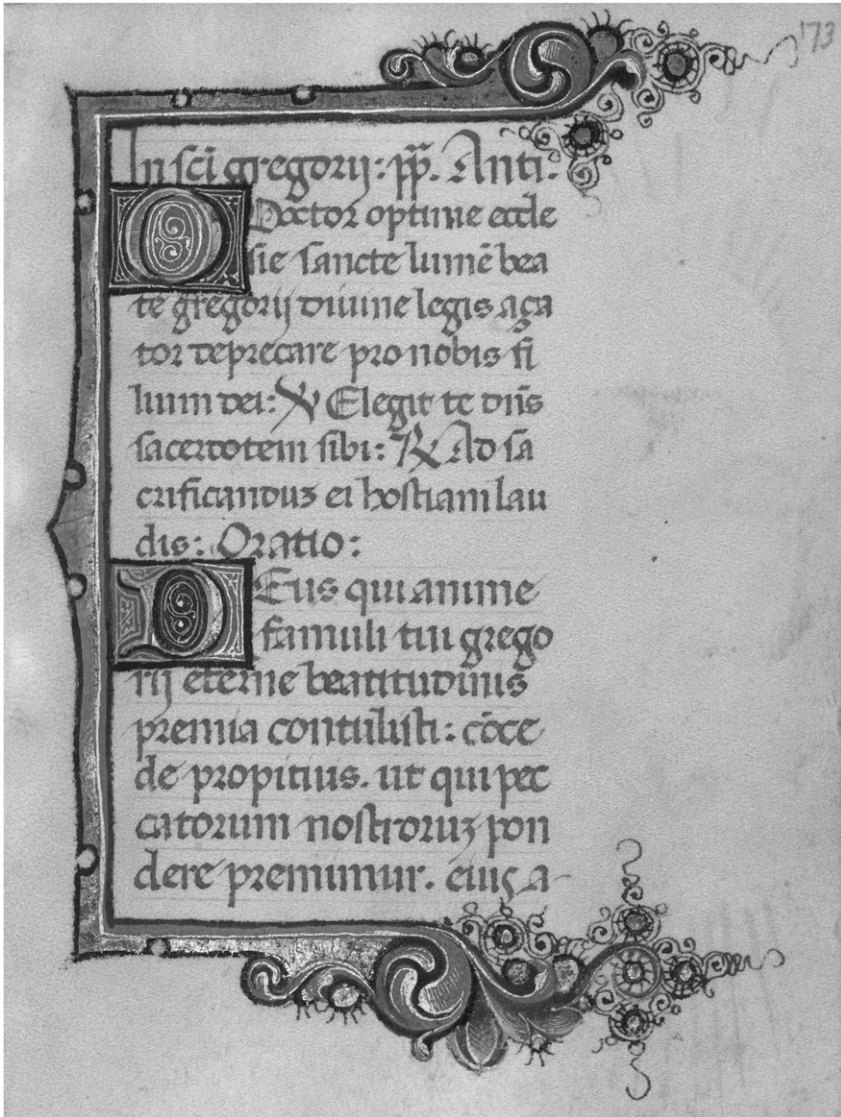 173
In sci gregorij: pp. Anti.
O Doctor optime eccle
sie sancte lumē bea
te gregorij diuine legis aça
tor deprecare pro nobis fi
lium dei: V Elegit te dn̄s
sacerdotem sibi: R Ad sa
crificanduꝫ ei hostiam lau
dis: Oratio:
D Eus qui anime
famuli tui grego
rij eterne beatitudinis
premia contulisti: cōce
de propitius. ut qui pec
catorum nostroruꝫ pon
dere premimur. eius a